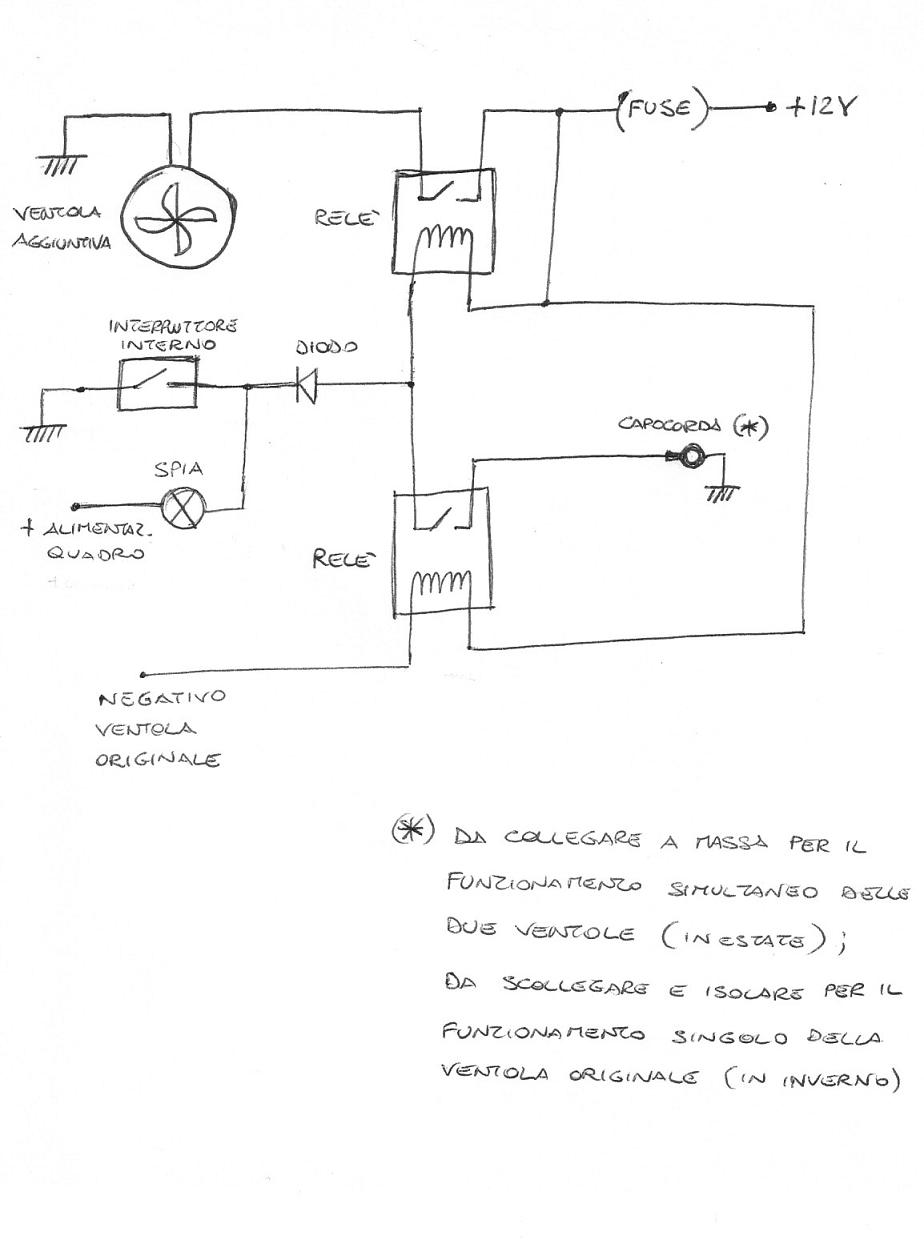 (FUSE)
+12V
VENTOLA
AGGIUNTIVA
RELE'
INTERRUTTORE
INTERNO
DIODO
CAPOCORDA (*)
SPIA
+ ALIMENTAZ.
QUADRO
RELE'
NEGATIVO
VENTOLA
ORIGINALE
(*) DA COLLEGARE A MASSA PER IL
FUNZIONAMENTO SIMULTANEO DELLE
DUE VENTOLE (IN ESTATE);
DA SCOLLEGARE E ISOLARE PER IL
FUNZIONAMENTO SINGOLO DELLA
VENTOLA ORIGINALE (IN INVERNO)